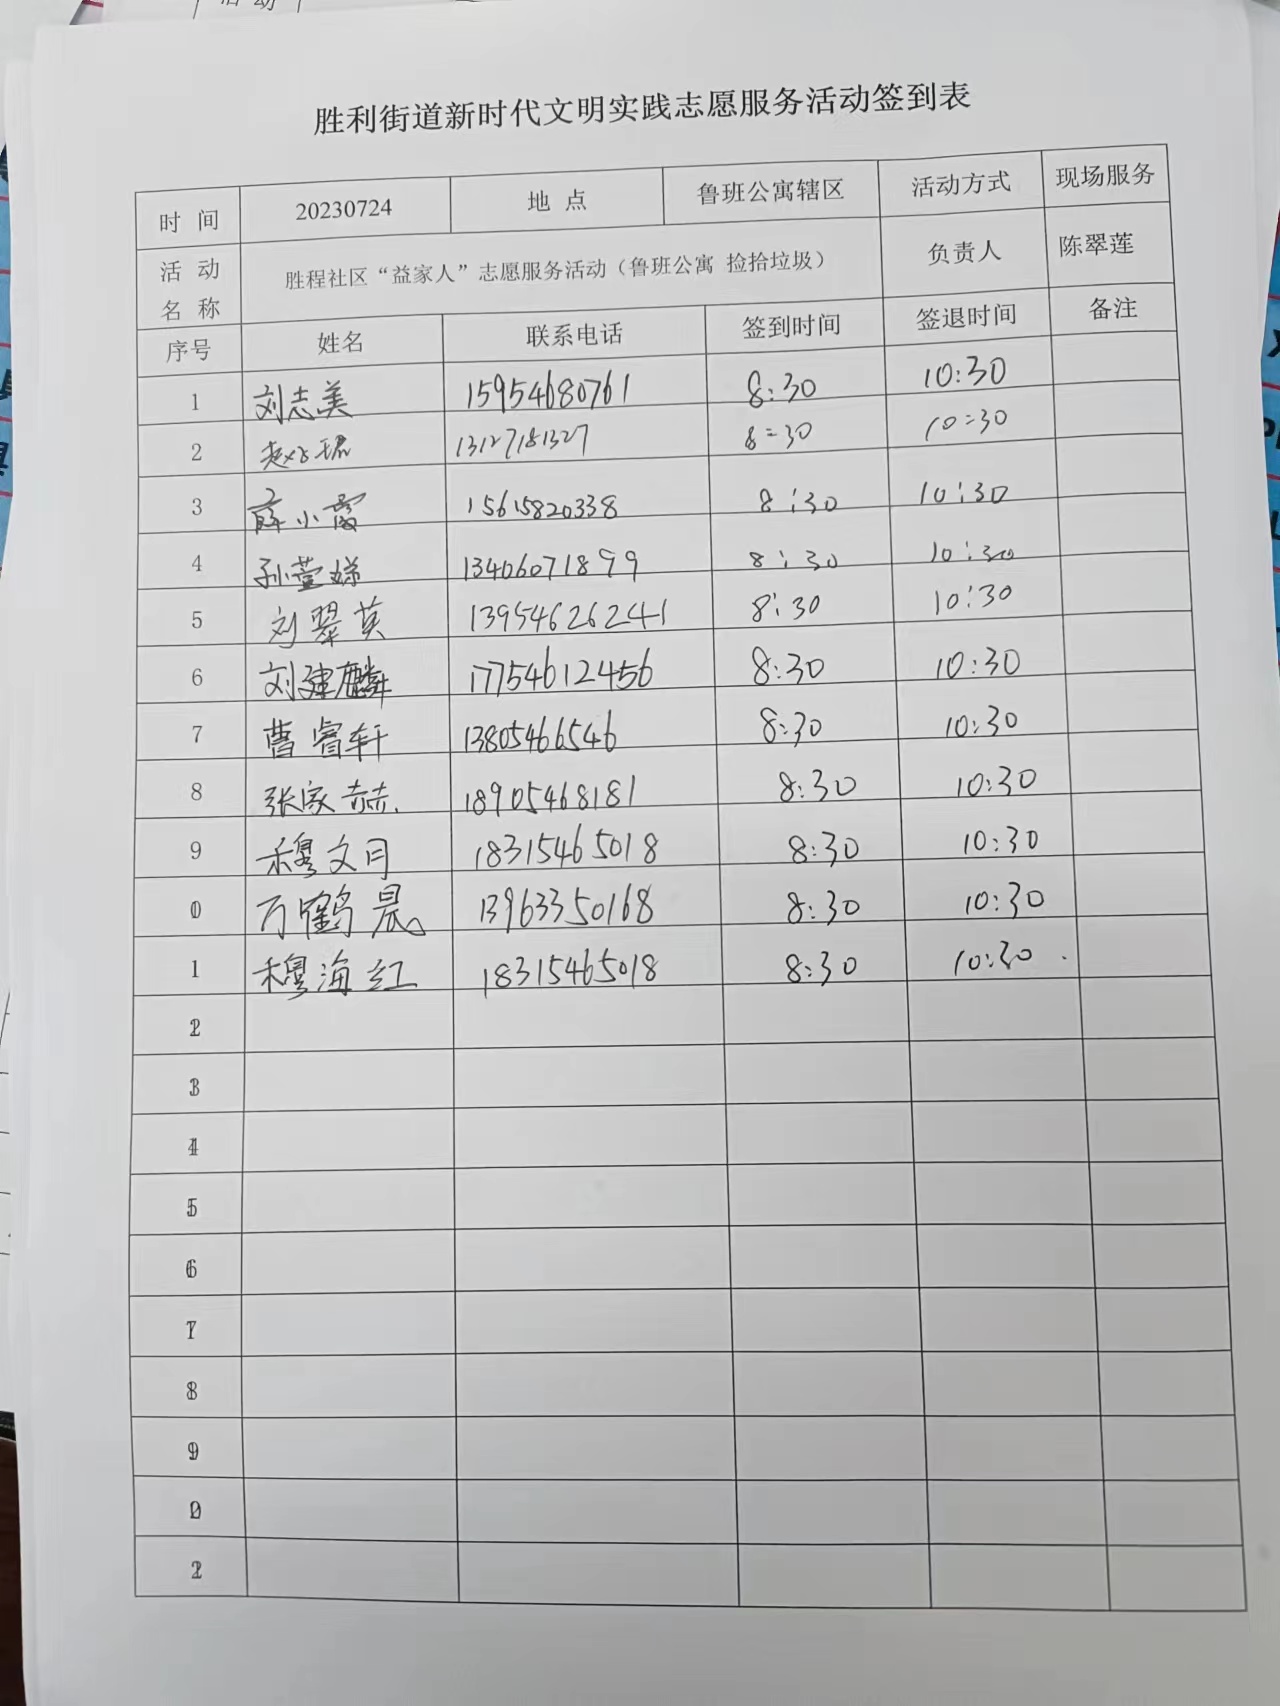 活 动
胜利街道新时代文明实践志愿服务活动签到表
时 间 20230724 地 点 鲁班公寓辖区 活动方式 现场服务
活 动 名 称 胜程社区“益家人”志愿服务活动（鲁班公寓 捡拾垃圾） 负责人 陈翠莲
序号 姓名 联系电话 签到时间 签退时间 备注
1 刘志美 15954680761 8:30 10:30
2 13127181327 8:30 10:30
3 薛小霞 15615820338 8:30 10:30
4 孙萱娣 13406071899 8:30 10:30
5 刘翠英 13954626241 8:30 10:30
6 刘建麟 17754612456 8:30 10:30
7 曹睿轩 13805466546 8:30 10:30
8 张家赫 18905468181 8:30 10:30
9 穆文月 18315465018 8:30 10:30
0 万鹤晨 13963350168 8:30 10:30
1 穆海红 18315465018 8:30 10:30
2
3
4
5
6
7
8
9
0
2